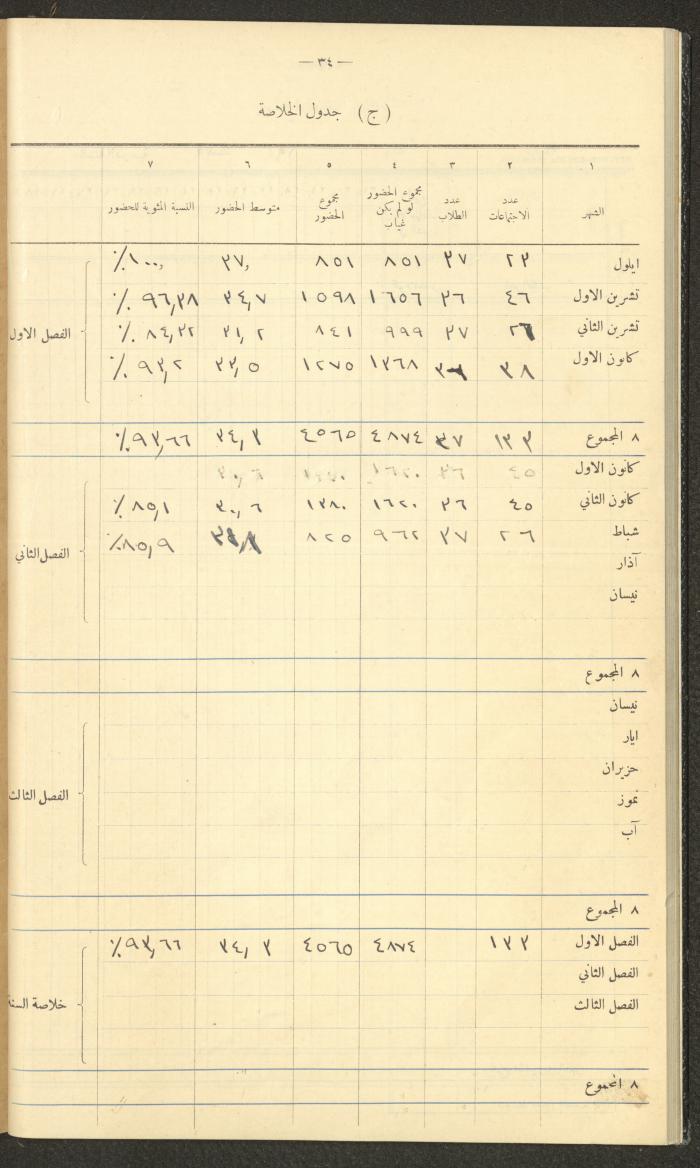 — ٣٤ —
(ج) جدول الخلاصة
١ ٢ ٣ ٤ ٥ ٦ ٧
الشهر عدد الاجتماعات عدد الطلاب مجموع الحضور لو لم يكن غياب مجموع الحضور متوسط الحضور النسبة المئوية للحضور
ايلول ٢٣ ٣٧ ٨٥١ ٨٥١ ٣٧, ١٠٠,٪
تشرين الاول ٤٦ ٣٦ ١٦٥٦ ١٥٩٨ ٣٤,٧ ٩٦,٣٨٪
تشرين الثاني ٢٦ ٣٧ ٩٩٩ ٨٤١ ٣١,٢ ٨٤,٣٢٪
الفصل الاول
كانون الاول ٣٨ ١٣٦٨ ١٢٧٥ ٣٣,٥ ٩٣,٢٪
٨ المجموع ١٣٣ ٣٧ ٤٨٧٤ ٤٥٦٥ ٣٤,٣ ٩٣,٦٦٪
كانون الاول ٤٥ ٣٦ ١٦٢٠ ٣٠,٦
كانون الثاني ٤٥ ٣٦ ١٦٢٠ ١٣٨٠ ٣٠,٦ ٨٥,١٪
شباط ٢٦ ٣٧ ٩٦٢ ٨٢٥ ٨٥,٩٪
الفصل الثاني
آذار
نيسان
٨ المجموع
نيسان
ايار
حزيران
الفصل الثالث
تموز
آب
٨ المجموع
الفصل الاول ١٣٣ ٤٨٧٤ ٤٥٦٥ ٣٤,٣ ٩٣,٦٦٪
الفصل الثاني
الفصل الثالث
خلاصة السنة
٨ المجموع